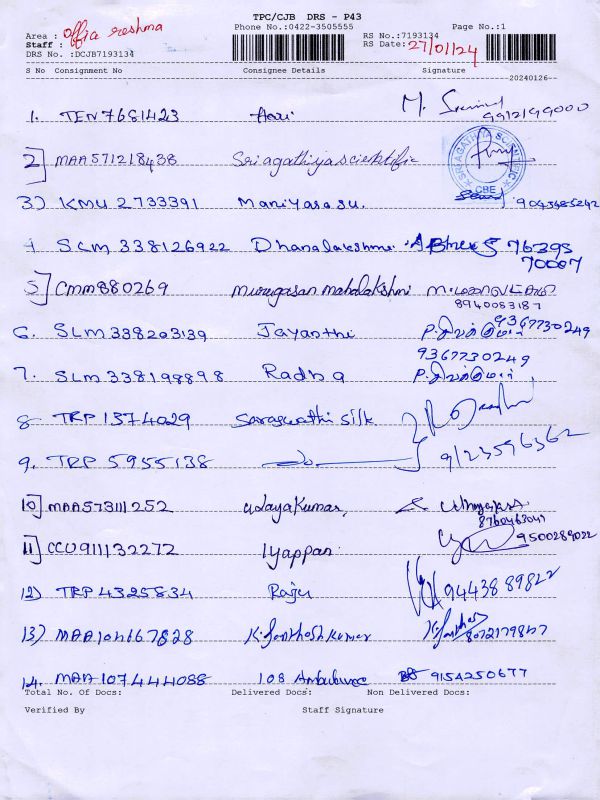 TPC/CJB DRS - P43
Phone No.:0422-3505555 Page No.:1
Area : offic reshma
Staff :
RS No.:7193134
RS Date: 27/01/24
DRS No. :DCJB7193134
S No Consignment No Consignee Details Signature
20240126--
1. TEN7681423 Hari M. 9912199000
2] MAA571218438 Sri agathiya scientific
SRI AGATHIYA SCIENTIFIC CBE
3) KMU 2733391 Maniyarasu. 9043485242
4 SLM 338126922 Dhanalakshmi 76395
70007
5] CMM880269 murugasan mahalakshmi
8940083187
6. SLM 338203139 Jayanthi 9367730249
9367730249
7. SLM 338198898 Radha
8 TRP 1374029 Saraswathi silk
9. TRP 5955138 — do — 9123596362
10] MAA573111252 udaya Kumar,
8760463041
11] CCU911132272 Iyappan. 9500289022
12) TRP 4325834 Raju 9443889822
13) MAA104667828 K. Santhosh kumar 8072179847
14. MAA 107444088 108 Ambulance 9154250677
Total No. Of Docs: Delivered Docs: Non Delivered Docs:
Verified By Staff Signature